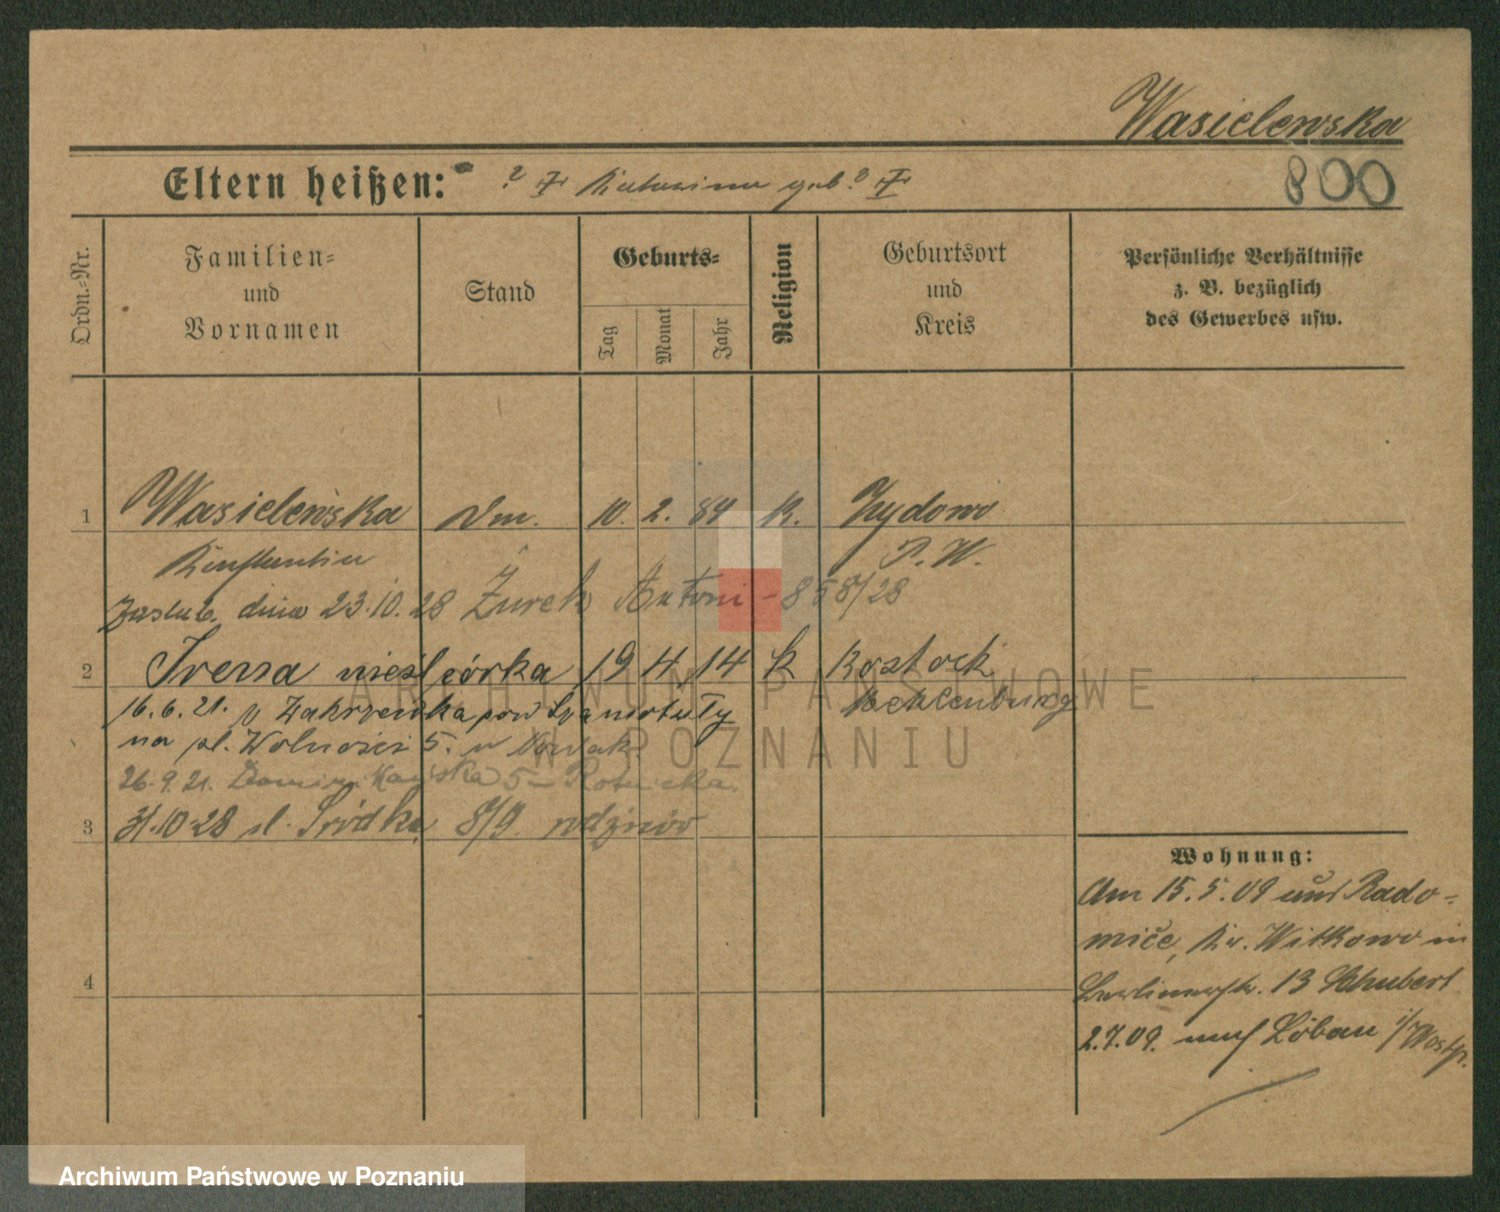 Wasielewska
800
Eltern heißen: ? Katarina geb ?
Ordn.-Nr.
Familien- und Vornamen
Stand
Geburts-
Tag
Monat
Jahr
Religion
Geburtsort und Kreis
Persönliche Verhältnisse
z. B. bezüglich
des Gewerbes usw.
1 Wasielewska 10. 2. 89 K. Żydowo
Konstantia P. W.
Zaślub. dnia 23.10.28 Żurek Antoni - 858/28
2 Irena nieśl córka 19 4 14 k Rostock
16.6.21. z Zakrzewka pow Szamotuły Meklenburg
na pl. Wolności 5. u Nowak
26.9.21. Dominikańska 5 - Rotnicka.
3 31.10.28 ul. Śródka 8/9 rodziców
4
Wohnung:
Am 15.5.09 aus Rado-
mice, Kr. Witkowo in
Berlinerstr. 13 Schubert
2.7.09. nach Löbau i/Westpr.
ARCHIWUM PAŃSTWOWE
W POZNANIU
Archiwum Państwowe w Poznaniu